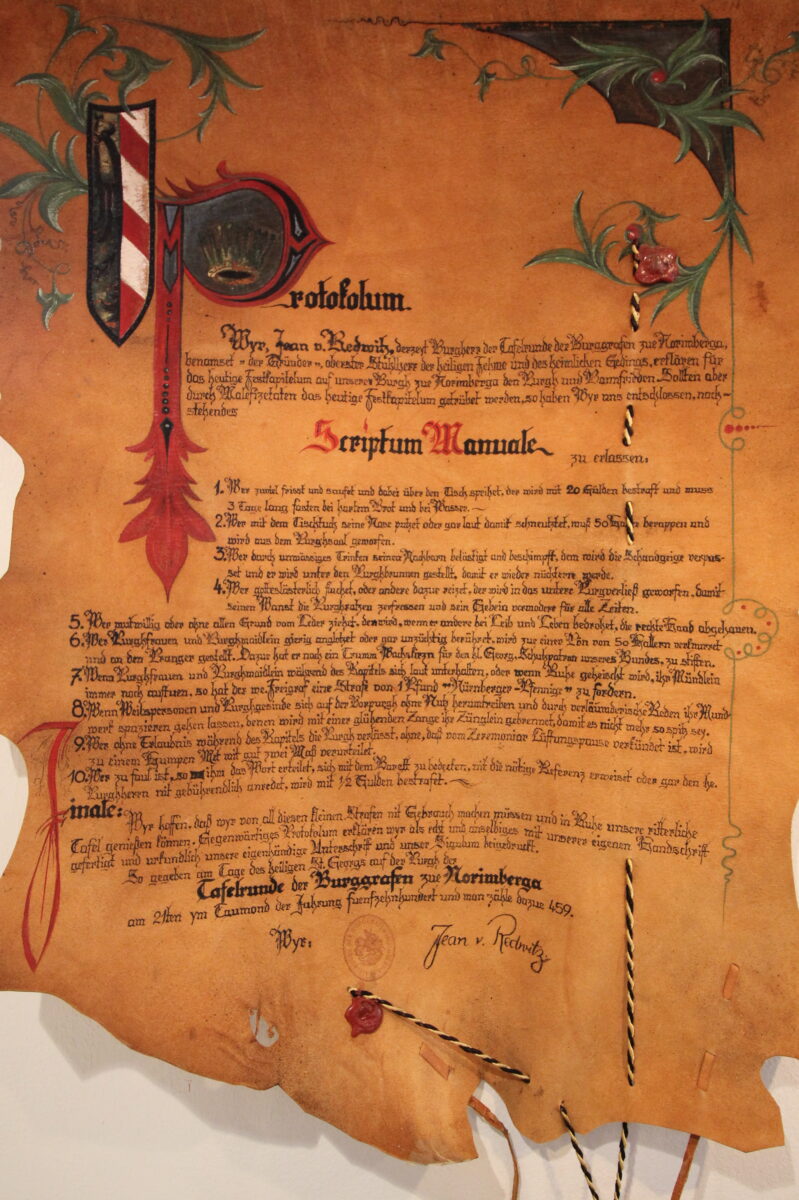 Protokolum.
Wyr, Jean v. Redwitz, derzeyt Burgherr der Tafelrunde der Burggrafen zue Norimberga,
benamset „der Gründer“, oberster Stuhlherr der heiligen Fehme und des heimlichen Gedings, erklären für
das heutige Festkapitelum auf unserer Burgh zue Norimberga den Burgh und Bannfrieden. Sollten aber
durch Malefizetaten das heutige Festkapitelum getrübet werden, so haben Wyr uns entschlossen, nach-
stehendes
Scriptum Manuale
zu erlassen:
1. Wer zuviel frisst und saufet und dabei über den Tisch speihet, der wird mit 20 Gulden bestraft und muss
3 Tage lang fasten bei hartem Brot und bei Wasser.
2. Wer mit dem Tischtuch seine Nase putzet oder gar laut damit schneutzet, muß 50 berappen und
wird aus dem Burghsaal geworfen.
3. Wer durch unmässiges Trinken seinen Nachbarn belästigt und beschimpft, dem wird die Schandgeige verpas-
set und er wird unter den Burghbrunnen gestellt, damit er wieder nüchtern werde.
4. Wer gotteslästerlich fluchet, oder andere dazu reizet, der wird in das untere Burgverließ geworfen, damit
seinen Wanst die Burghratzen zerfressen und sein Gebein vermodere für alle Zeiten.
5. Wer mutwillig oder ohne allen Grund vom Leder ziehet, dem wird, wenn er andere bei Leib und Leben bedrohet, die rechte Hand abgehauen.
6. Wer Burghfrauen und Burghmaidlein gierig anglotzet oder gar unzüchtig berühret, wird zur einer Pön von 50 Hallern verknurret
und an den Pranger gestellt. Dazu hat er noch ein Trumm Wachslizn für den hl. Georg, Schutzpatron unseres Bundes, zu stiften.
7. Wenn Burghfrauen und Burghmaidlein während des Kapitels sich laut unterhalten, oder wenn Ruhe geheischt wird, ihr Mündlein
immer noch auftuen, so hat der we. Freigraf eine Strafe von 1 Pfund „Nürnberger-Pfennige“ zu fordern.
8. Wenn Weibspersonen und Burghgesinde sich auf der Vorpurgh ohne Ruh herumtreiben und durch verläumderische Reden ihr Mund-
werk spazieren gehen lassen, denen wird mit einer glühenden Zange ihr Zünglein gebrennet, damit es nicht mehr so spitz sey.
9. Wer ohne Erlaubnis während des Kapitels die Burgh verlässt, ohne, daß vom Zeremoniar Lüftungspause verkündet ist, wird
zu einem Humpen Met mit gut zwei Maß verurteilet.
10. Wer zu faul ist, so ihm das Wort erteilet, sich mit dem Barett zu bedecken, nit die nötige Referenz erweiset oder gar den he.
Burghherren nit gebührendlich anredet, wird mit 1/2 Gulden bestrafet.
Finale:
Wyr hoffen, daß wyr von all diesen kleinen Strafen nit Gebrauch machen müssen und in Ruhe unsere ritterliche
Tafel genießen können. Gegenwärtiges Protokolum erklären wyr als echt und anselbiges mit unserer eigenen Handschrift
gefertigt und urkundlich unsere eigenhändige Unterschrift und unser Signum beigedruckt.
So gegeben am Tage des heiligen St. Georgs auf der Burgh der
Tafelrunde der Burggrafen zue Norimberga
am 21ten ym Taumond der Jahrung fuenfzehnhundert und man zähle dazue 459.
Wyr: Jean v. Redwitz